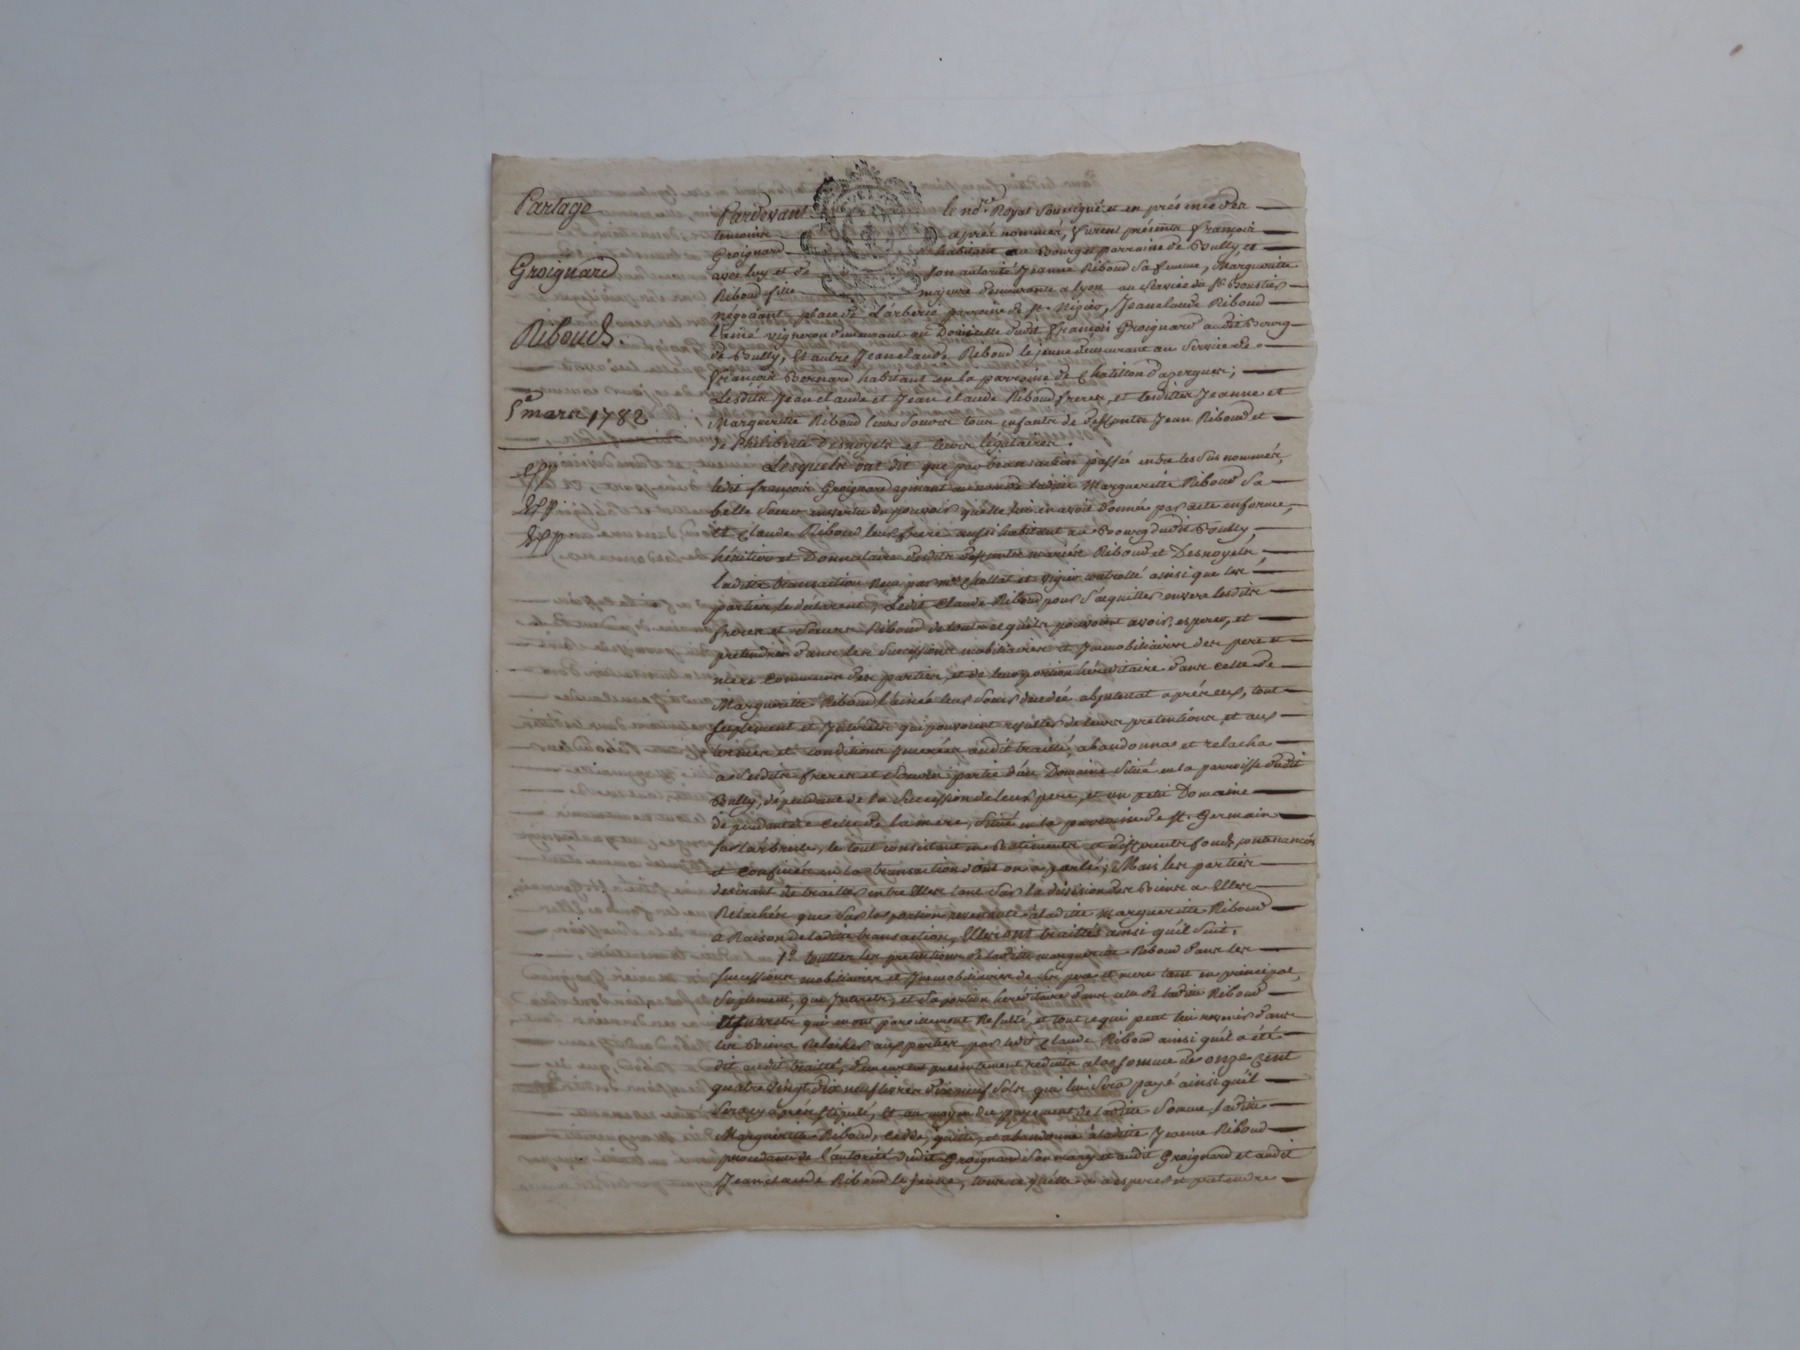 Partage
Groignard
Riboud.
5e mars 1782
Pardevant le nore Royal soussigné et en présence des
temoins apres nommés, furent présents François
Groignard habitant au Bourg et parroisse de Bully et
avec luy et de son autorité Jeanne Riboud sa femme, Marguerite
Riboud fille majeure demeurante a Lyon au service du Sr
negociant place de L'arberie parroisse de St. Nizier, Jeanclaude Riboud
L'ainé vigneron demeurant au Domicille dudit François Groignard audit Bourg
de Bully, Et autre Jeanclaude Riboud le jeune demeurant au service de
François Bernard habitant en la parroisse de Chatillon d'azergues;
Lesdits Jean claude et Jean claude Riboud freres, et lesdittes Jeanne et
Marguerite Riboud leurs soeurs tous enfants de deffunts Jean Riboud et
de Philiberte Desnoyels et leurs légataires.
Lesquels ont dit que par transaction passée entre les sus nommés,
ledit françois Groignard agissant au nom de laditte Marguerite Riboud sa
belle soeur envertu du pouvoir quelle lui en avoit donné par acte enforme,
Et Claude Riboud leur frere aussi habitant au Bourg dudit Bully,
héritier et Donnataire desdits deffunts mariés Riboud et Desnoyels,
laditte transaction reçue par mes Chollet et vigier controllé ainsi que les
parties le déclarent, Ledit Claude Riboud pour s'acquitter envers lesdits
freres et soeurs Riboud de tout ce qu'ils pouvoient avoir, esperer, et
pretendre dans les successions mobiliaires et Immobiliaires des pere et
mere communs des parties, et de leur portion héréditaire dans celle de
Marguerite Riboud l'ainée leur soeur decedée abintestat après eux, tout
suplement et Interets qui pouvoient resulter de leurs pretentions, et aux
termes et conditions Inserées audit traitté, abandonna et relacha
a sesdits freres et soeurs partie d'un Domaine situé en la parroisse dudit
Bully, dépendant de la succession de leur pere, et un petit Domaine
dépendant de celle de la mere, situé en la parroisse de St. Germain
sur Larbresle, le tout consistant en Batiments et differents fonds, contenancés
et confinés en la transaction dont on a parlé; Mais les parties
desirant de traitter entre Elles tant sur la division des Biens a Elles
Relachés que sur la portion revenante à laditte marguerite Riboud
a Raison de laditte transaction, Elles ont traittés ainsi qu'il suit.
1o. touttes les pretentions de laditte marguerite Riboud dans les
successions mobiliaires et Immobiliaires de ses pere et mere tant en principal,
suplement, que Interets, et sa portion héréditaire dans celle de laditte Riboud
et Interets qui en ont pareillement Resulté, et tout ce qui peut lui revenir dans
les Biens Relachés aux parties par ledit Claude Riboud ainsi qu'il a été
dit audit traitté, demeurent presentement reduits a la somme de onze cent
quatre vingt dix neuf livres dix neuf sols qui lui sera payé ainsi qu'il
sera cy après stipulé, Et au moyen du payement de laditte somme, laditte
Marguerite Riboud, cedde, quitte, et abandonne à laditte Jeanne Riboud
procedante de l'autorité dudit Groignard son mary et audit Groignard et audit
Jeanclaude Riboud le jeune, tout ce qu'elle a a esperer et pretendre